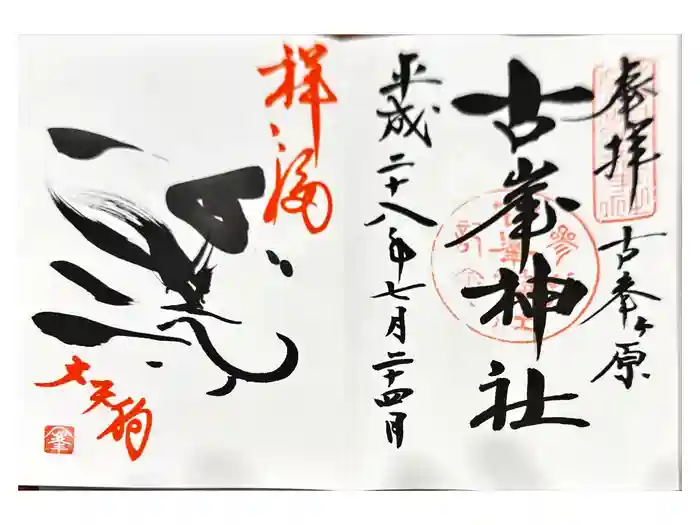 奉拝
古峯ヶ原
古峯神社
平成二十八年七月二十四月
祥福
大天狗